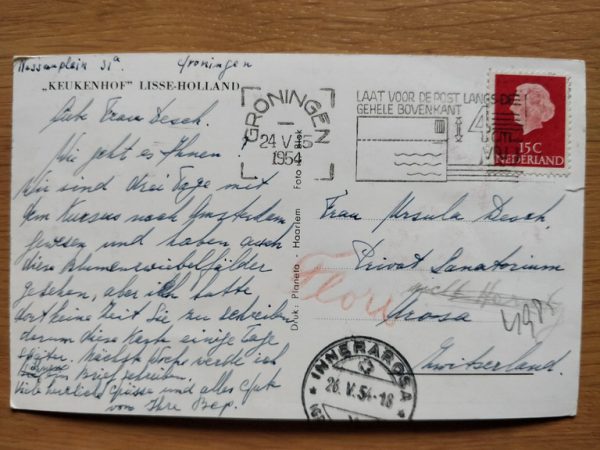 Nassauplein 31a Groningen
"KEUKENHOF" LISSE-HOLLAND
Liebe Frau Desch.
Wie geht es Ihnen?
Wir sind drei Tage mit
dem Kursus nach Amsterdam
gewesen und haben auch
diese Blumenzwiebelfälder
gesehen, aber ich hatte
dort keine Zeit Sie zu schreiben
darum diese Karte einige Tage
später. Nächste Woche werde ich
Brief schreiben.
Viele herzliche Grüsse und alles Gute
von Ihre Bep.
Druk: Planeta Haarlem Foto
GRONINGEN
24 V 15
1954
LAAT VOOR DE POST LANGS DE
GEHELE BOVENKANT
4
15 C
NEDERLAND
Frau Ursula Desch.
Privat Sanatorium
Arosa
Zwitserland.
INNERAROSA
26. V. 54 - 18